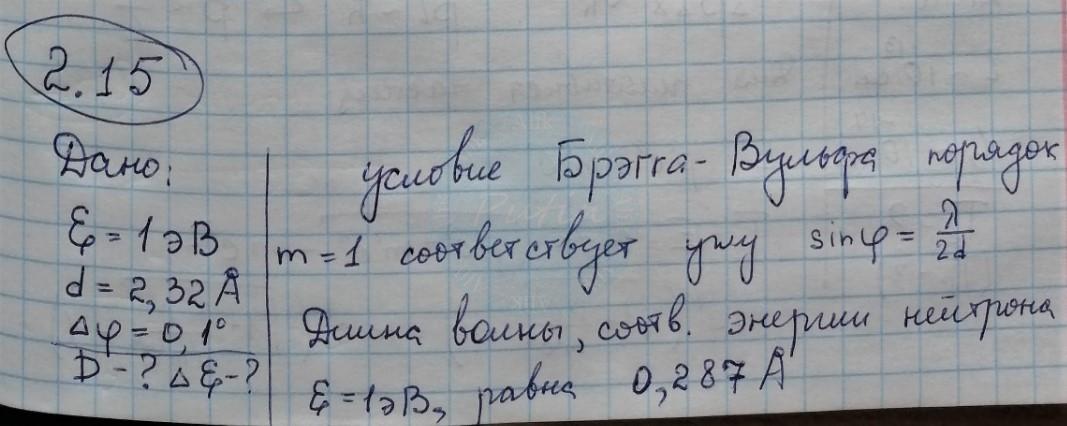 2.15
Дано:
ℰ = 1 эВ
d = 2,32 Å
Δφ = 0,1°
D - ? Δℰ - ?
условие Брэгга - Вульфа порядок
m = 1 соответствует углу sinφ = λ/2d
Длина волны, соотв. энергии нейтрона
ℰ = 1 эВ, равна 0,287 Å